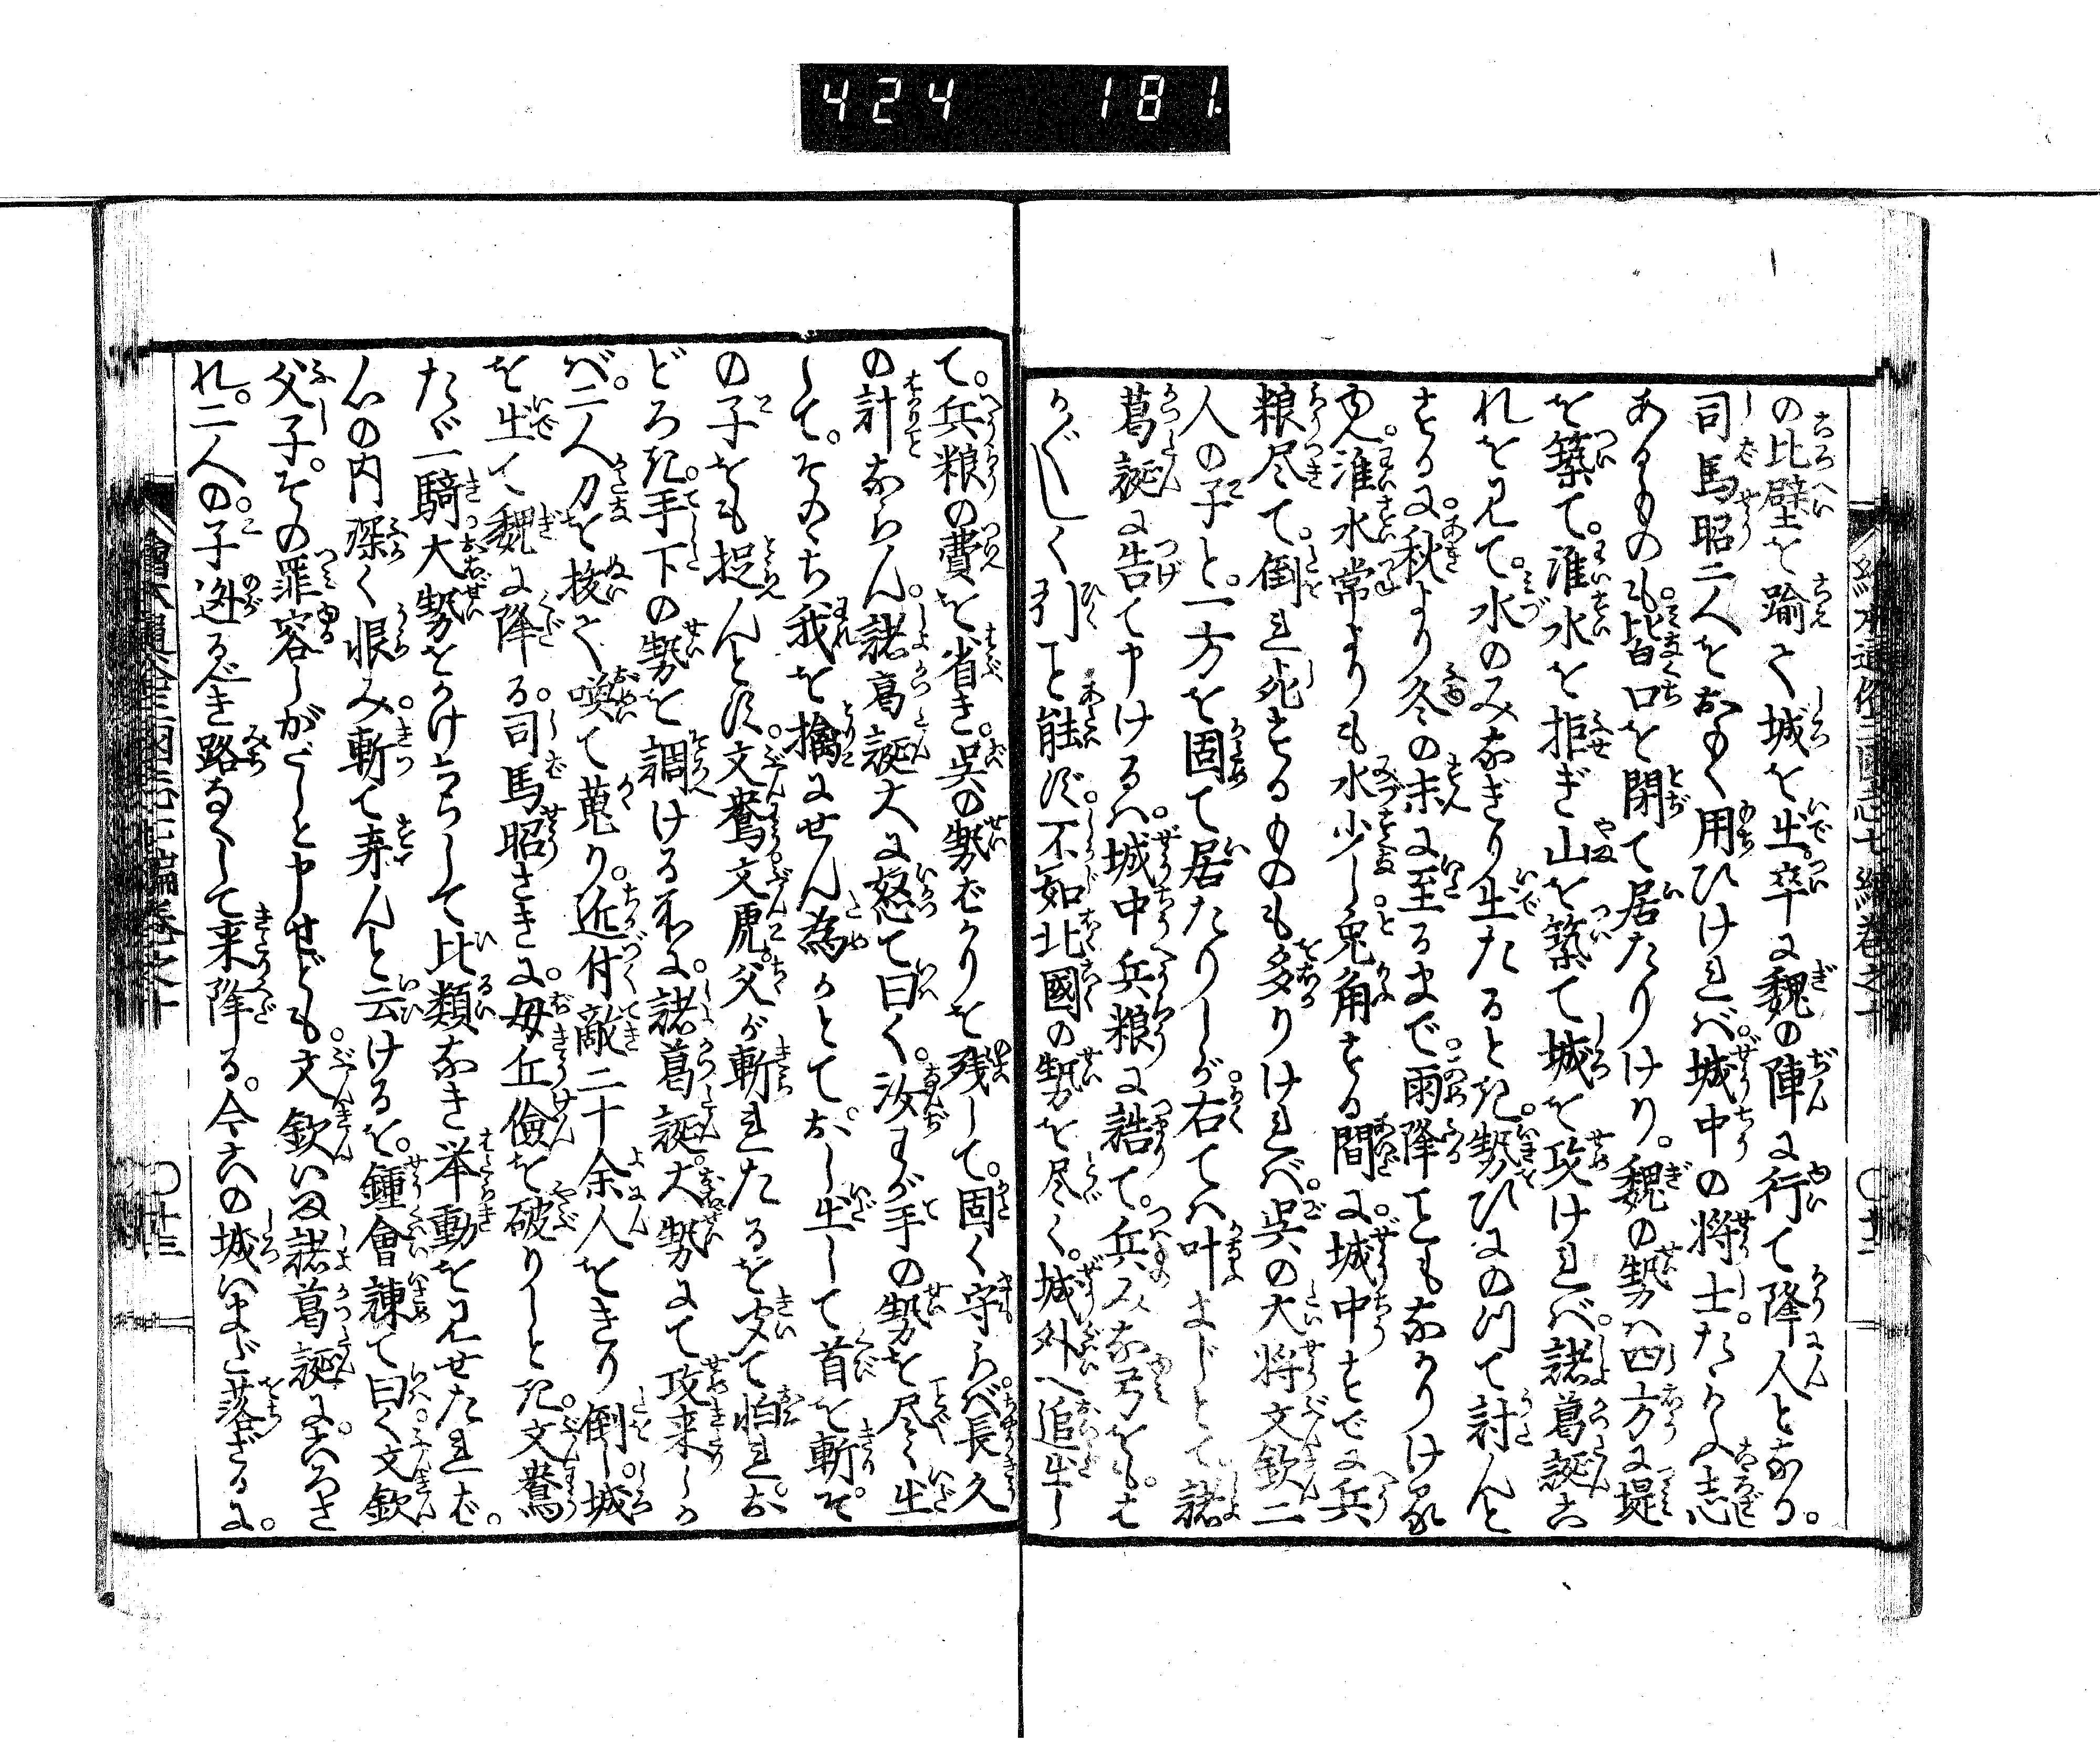 424 181.
の比壁を踰て城を出。卒に魏の陣に行て降人となる。
司馬昭二人をおもく用ひければ。城中の将士。たかふ志
あるものも。皆口を閉て居たりけり。魏の勢ハ四方に堤
を築て。淮水を拒ぎ山を築て城を攻ければ。諸葛誕こ
れを見て。水のみなぎり出たるとき。勢ひにのつて討んと
するに。秋より冬の末に至るまで。雨降こともなかりけれ
ば。淮水常よりも水少し。兎角する間に。城中すでに兵
粮尽て。倒れ死するものも多かりければ。呉の大将文欽二
人の子と。一方を固て居たりしが。右てハ叶まじとて諸
葛誕に告て申けるハ。城中兵粮に誥て。兵みな弓をも。は
かばかしく引こと能ず。不如北國の勢を尽く。城外へ追出し
て。兵粮の費を省き。呉の勢ばかりを残して。固く守らべ長久
の計ならん。諸葛誕大に怒て曰く。汝わが手の勢を尽く出
して。そのゝち我を擒にせん為かとて。おし出して首を斬。そ
の子をも捉んとす。文鴦文虎。父が斬れたるを聞て怕れお
どろき。手下の勢を調ける所に。諸葛誕。大勢にて攻来しか
ば。二人刀を抜て喚て蒐り。近付敵二十余人をきり倒し。城
を出て魏に降る。司馬昭さきに。毋丘儉を破りしとき。文鴦
たゞ一騎大勢をかけちらして比類なき挙動を見せたれば。
心の内深く恨み。斬て弃んと云けるを。鍾會諫て曰く文欽
父子。その罪容しがたしと申せども。文欽いま諸葛誕に。ころさ
れ。二人の。子迯るべき路なくして来降る。今この城いまだ落ざるに。